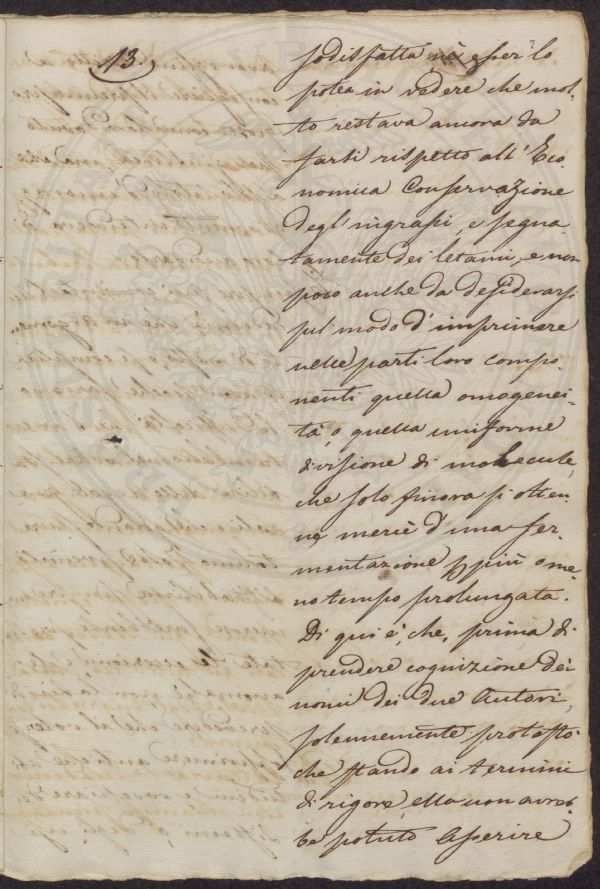 13.
sodisfatta nè esser lo
potea in vedere che mol-
to restava ancora da
farsi rispetto all'Eco-
nomica Conservazione
degl'ingrassi, e segna-
tamente dei letami, e non
poco anche da desiderarsi
sul modo d'imprimere
nelle parti loro compo-
nenti quella omogenei-
tà, o quella uniforme
divisione di molecule,
che solo finora si otten-
ne mercè d'una fer-
mentazione per più o me-
no tempo prolungata.
Di qui è, che, prima di
prendere cognizione dei
nomi dei due Autori,
solennemente protestò
che stando ai termini
di rigore, ella non avreb-
be potuto asserire